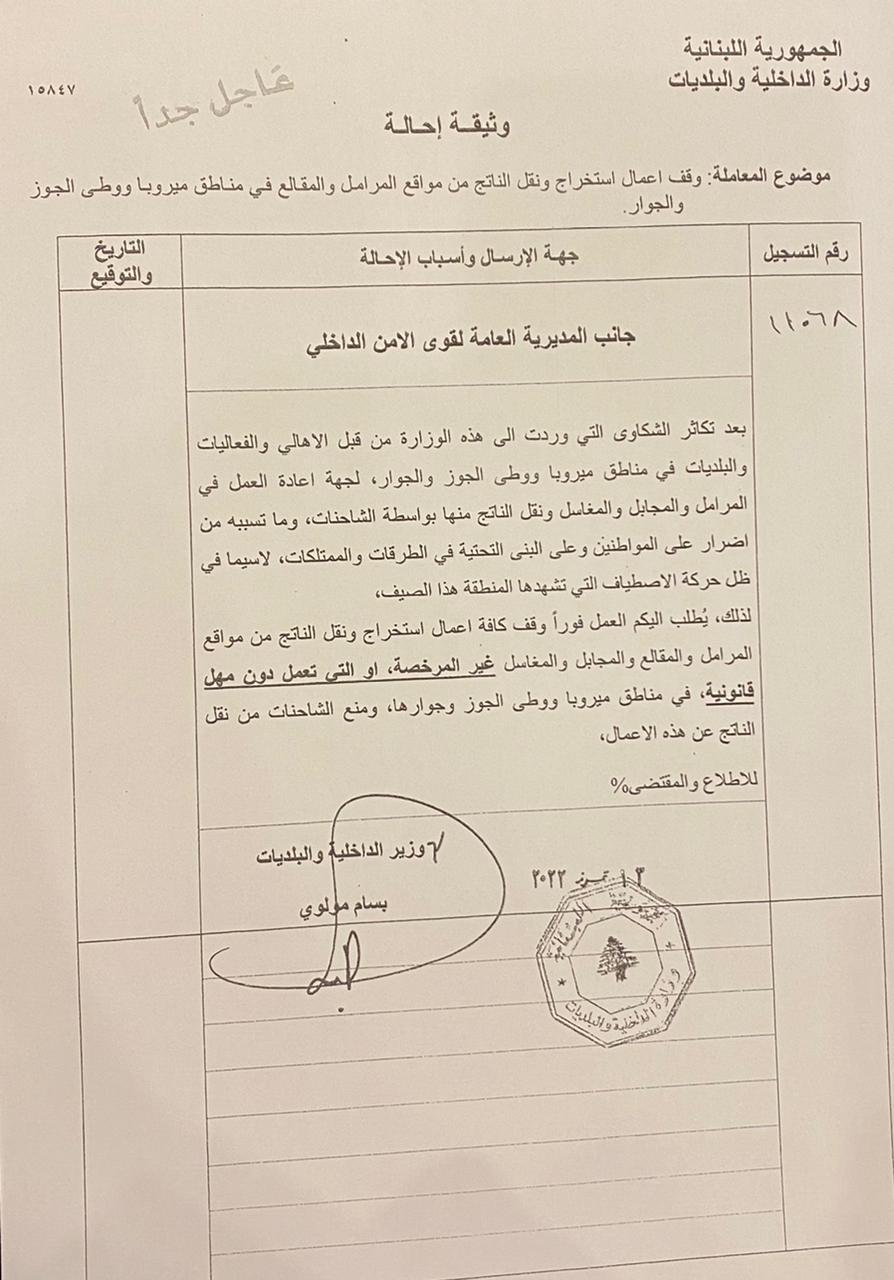 الجمهورية اللبنانية
وزارة الداخلية والبلديات
١٥٨٤٧
عاجل جداً
وثيقة إحالة
موضوع المعاملة: وقف اعمال استخراج ونقل الناتج من مواقع المرامل والمقالع في مناطق ميروبا ووطى الجوز
والجوار.
رقم التسجيل
جهة الإرسال وأسباب الإحالة
التاريخ
والتوقيع
١١٠٦٨
جانب المديرية العامة لقوى الامن الداخلي
بعد تكاثر الشكاوى التي وردت الى هذه الوزارة من قبل الاهالي والفعاليات
والبلديات في مناطق ميروبا ووطى الجوز والجوار، لجهة اعادة العمل في
المرامل والمجابل والمغاسل ونقل الناتج منها بواسطة الشاحنات، وما تسببه من
اضرار على المواطنين وعلى البنى التحتية في الطرقات والممتلكات، لاسيما في
ظل حركة الاصطياف التي تشهدها المنطقة هذا الصيف،
لذلك، يُطلب اليكم العمل فوراً وقف كافة اعمال استخراج ونقل الناتج من مواقع
المرامل والمقالع والمجابل والمغاسل غير المرخصة، او التي تعمل دون مهل
قانونية، في مناطق ميروبا ووطى الجوز وجوارها، ومنع الشاحنات من نقل
الناتج عن هذه الاعمال،
للاطلاع والمقتضى%
وزير الداخلية والبلديات
بسام مولوي
١٣ تموز ٢٠٢٢
الجمهورية اللبنانية
وزارة الداخلية والبلديات